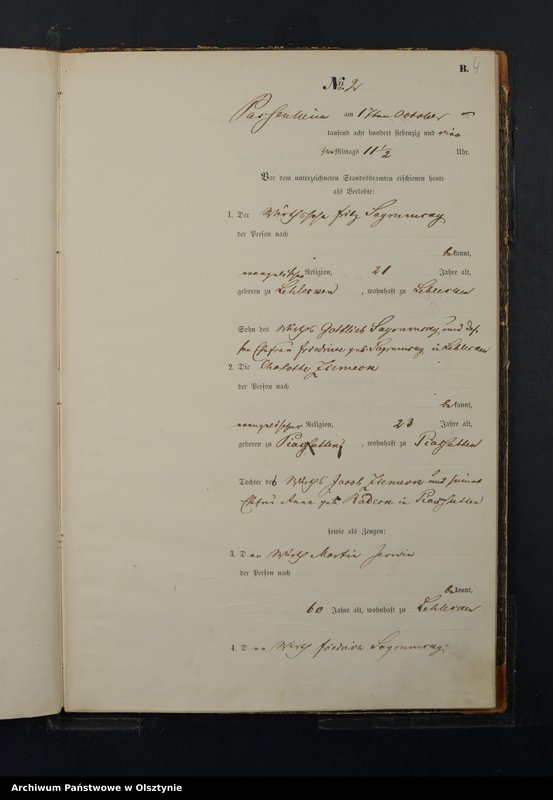 B. 4
No. 2
Passenheim am 17ten October
tausend acht hundert siebenzig und vier
Vor Mittags 11 1/2 Uhr.
Vor dem unterzeichneten Standesbeamten erschienen heute
als Verlobte:
1. Der Wirthssohn Fritz
der Person nach
bekannt,
evangelischer Religion, 21 Jahre alt,
geboren zu Lehlesken, wohnhaft zu Lehlesken
Sohn des Wirths Gottlieb und
Ehefrau Friedrike geb. in Lehlesken
2. Die Charlotte
der Person nach
bekannt,
evangelischer Religion, 23 Jahre alt,
geboren zu, wohnhaft zu
Tochter des Wirths Jacob und seiner
Ehefrau Anna geb. in
sowie als Zeugen:
3. Der Wirth Martin
der Person nach
bekannt,
60 Jahre alt, wohnhaft zu Lehlesken
4. Der Wirth Friedrich
Archiwum Państwowe w Olsztynie